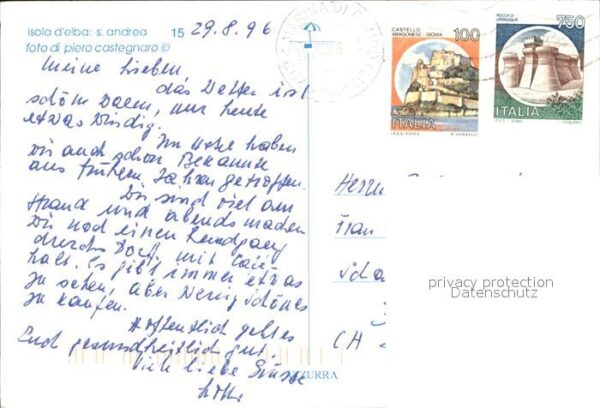 isola d'elba: s. andrea 15
foto di piero castegnaro ©
29.8.96
Meine Lieben
das Wetter ist
schön warm, nur heute
etwas windig.
Im Hotel haben
wir auch schon Bekannte
aus früheren Jahren getroffen.
Wir sind viel am
Strand und abends machen
wir noch einen Rundgang
durchs Dorf mit
halt. Es gibt immer etwas
zu sehen, aber wenig schönes
zu kaufen.
Hoffentlich geht es
Euch gesundheitlich gut.
Viele liebe Grüsse
AZZURRA
CASTELLO
ARAGONESE - ISCHIA
100
ITALIA
I.P.Z.S. - ROMA
ROCCA DI
URBISAGLIA
750
ITALIA
I.P.Z.S. - ROMA
Herrn
Frau
CH
privacy protection
Datenschutz